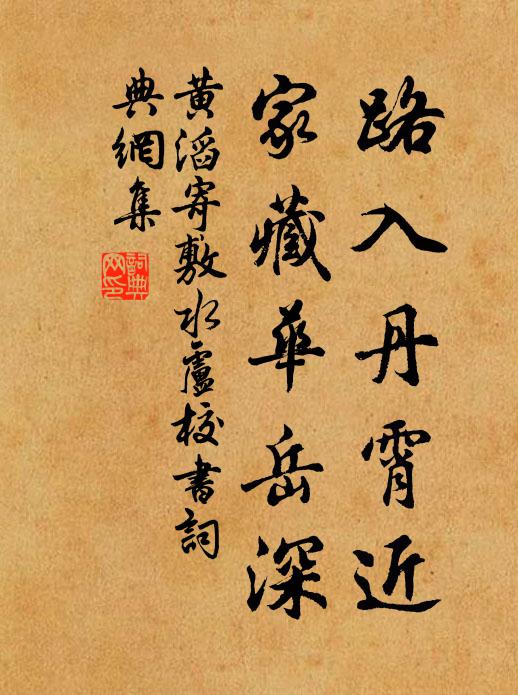 路入丹霄近
家藏華岳深
黃滔寄敷水盧校書詞
典網集
詞典
网印